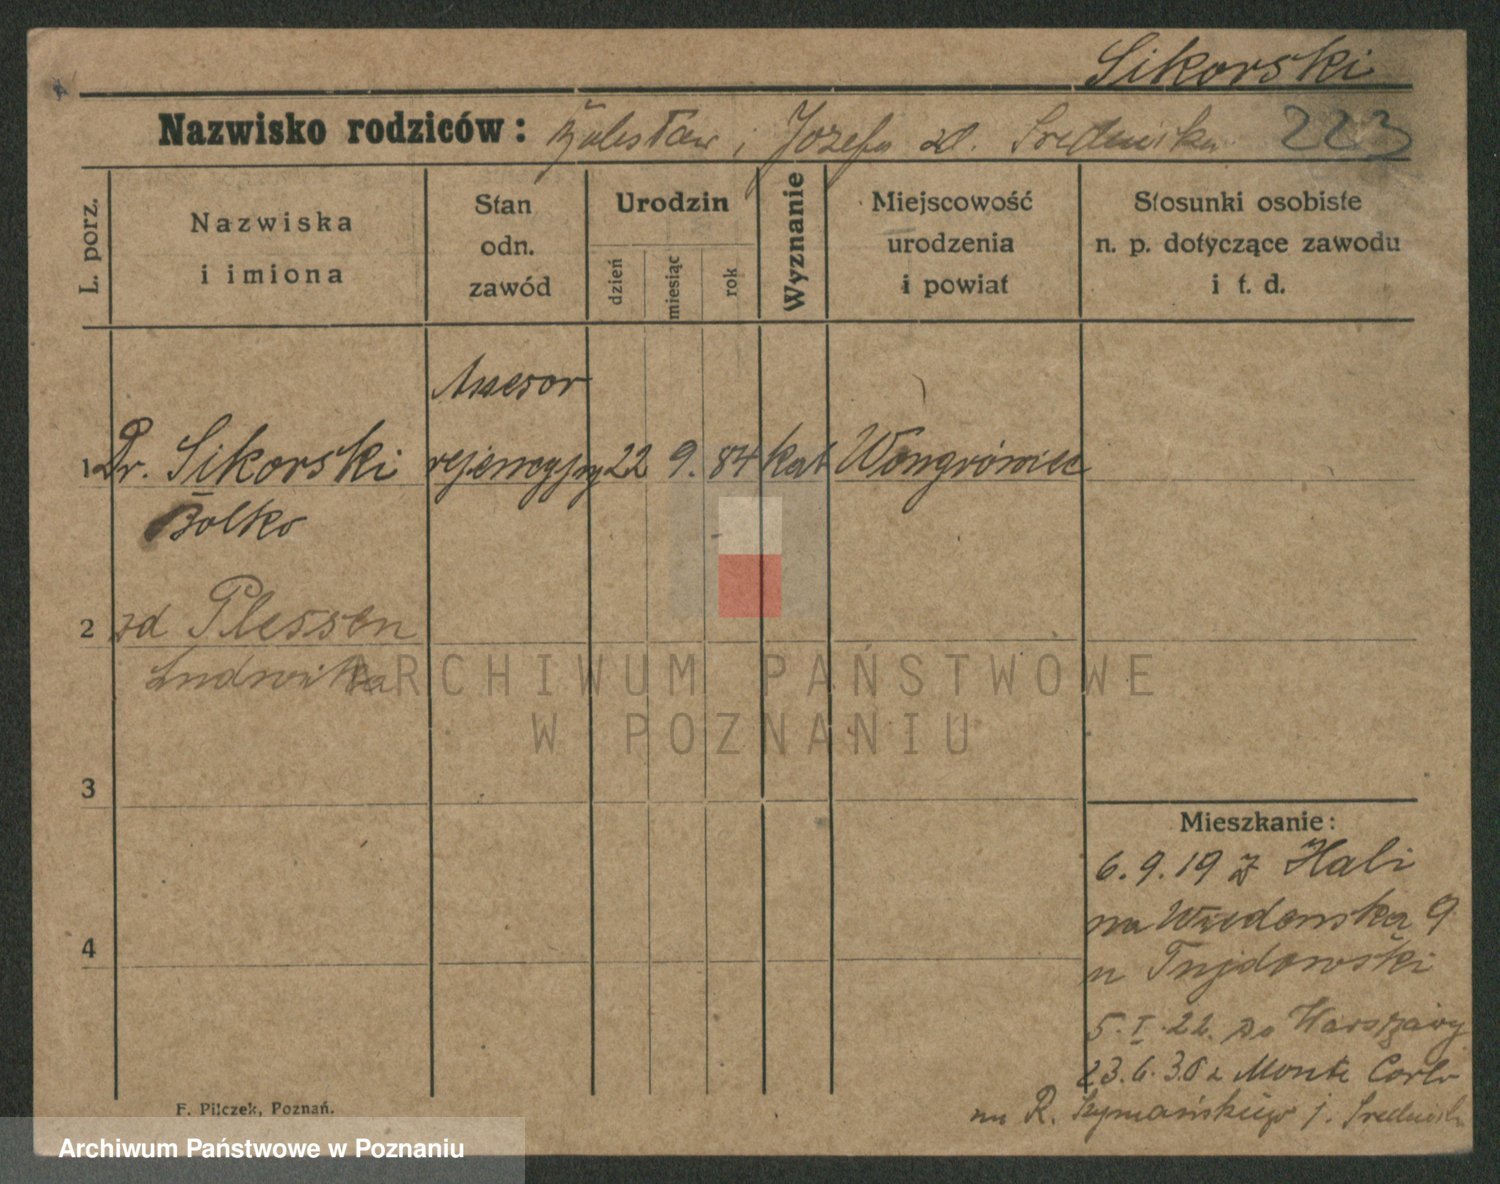 Sikorski
Nazwisko rodziców: Bolesław i Józefa zd. Srednicka 223
L. porz.
Nazwiska
i imiona
Stan
odn.
zawód
Urodzin
dzień
miesiąc
rok
Wyznanie
Miejscowość
urodzenia
i powiat
Stosunki osobiste
n. p. dotyczące zawodu
i t. d.
Asesor
1 Dr. Sikorski rejencyjny 22 9. 84 kat Wongrówiec
Bolko
2 zd Plessen
Ludwika
3
4
Mieszkanie:
6.9.19 z Hali
na Wiedenska 9
u
5.I.22. do Warszawy
23.6.36 z Monte Carlo
na R. Szymańskiego j.
F. Pilczek, Poznań.
ARCHIWUM PAŃSTWOWE
W POZNANIU
Archiwum Państwowe w Poznaniu